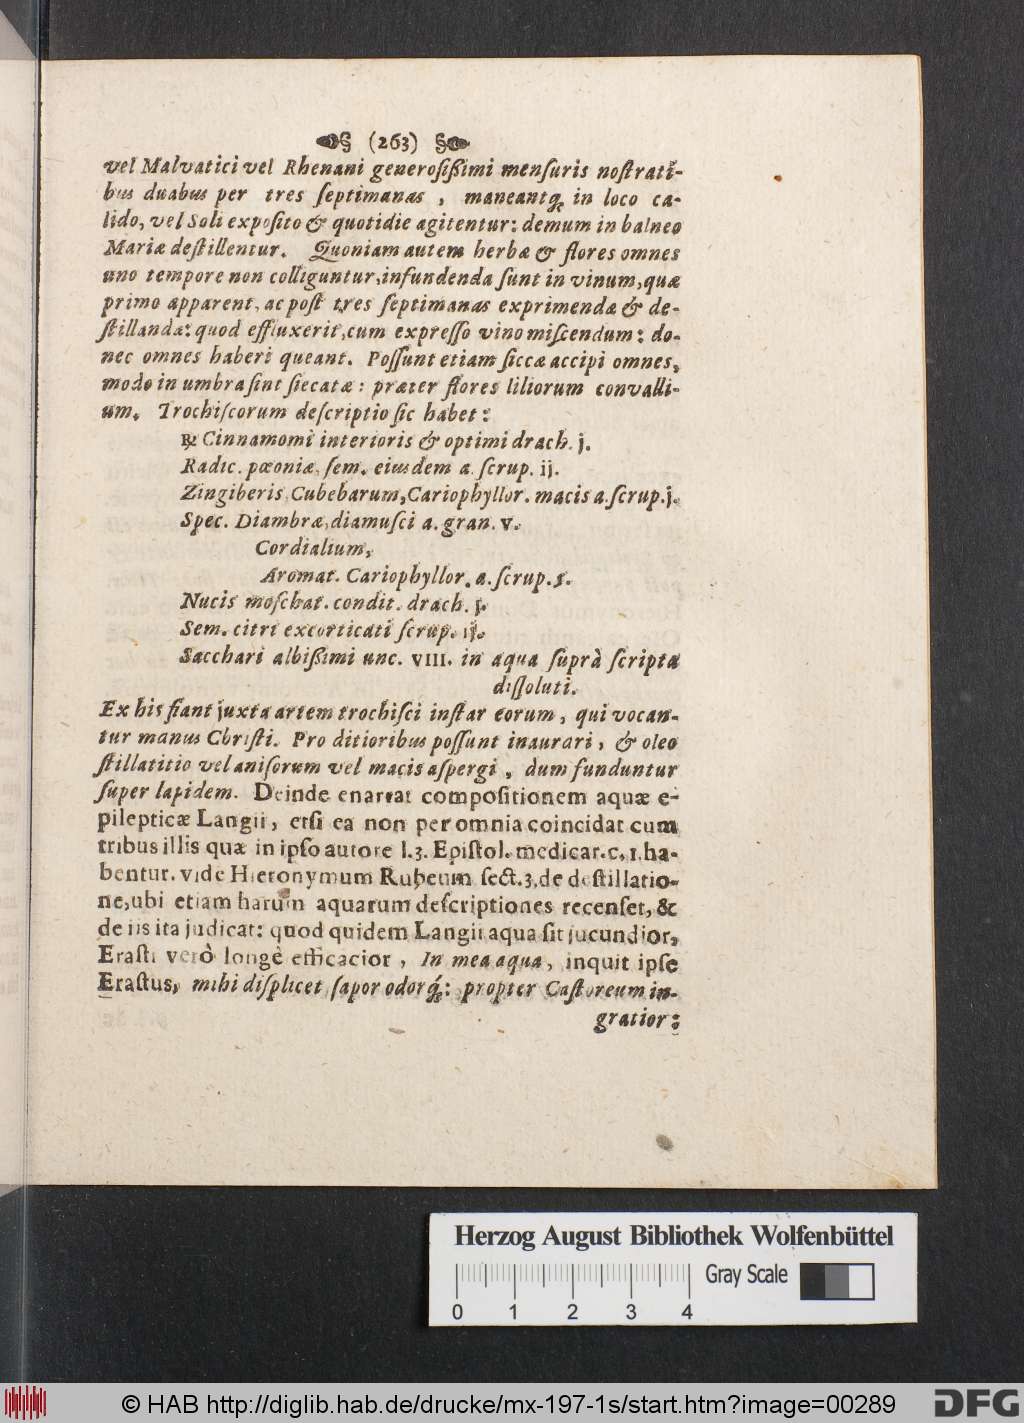 (263)
vel Malvatici vel Rhenani generosißimi mensuris nostrati-
bus duabus per tres septimanas, maneantq́ in loco ca-
lido, vel Soli exposito & quotidie agitentur: demum in balneo
Mariæ destillentur. Quoniam autem herbæ & flores omnes
uno tempore non colliguntur, infundenda sunt in vinum, quæ
primo apparent, ac post tres septimanas exprimendæ & de-
stillandæ: quod effluxerit, cum expresso vino miscendum: do-
nec omnes haberi queant. Possunt etiam siccæ accipi omnes,
modo in umbra sint siccatæ: præter flores liliorum convalli-
um. Trochiscorum descriptio sic habet:
℞ Cinnamomi interioris & optimi drach. j.
Radic. pæoniæ, sem. eiusdem a. scrup. ij.
Zingiberis, Cubebarum, Cariophyllor. macis a. scrup. j.
Spec. Diambræ, diamusci a. gran. v.
Cordialium,
Aromat. Cariophyllor. a. scrup. s.
Nucis moschat. condit. drach. j.
Sem. citri excorticati scrup. ij.
Sacchari albißimi unc. VIII. in aqua suprà scripta
dissoluti.
Ex his fiant juxta artem trochisci instar eorum, qui vocan-
tur manus Christi. Pro ditioribus possunt inaurari, & oleo
stillatitio vel anisorum vel macis aspergi, dum funduntur
super lapidem. Deinde enarrat compositionem aquæ e-
pilepticæ Langii, etsi ea non per omnia coincidat cum
tribus illis quæ in ipso autore l. 3. Epistol. medicar. c. 1. ha-
bentur. vide Hieronymum Rubeum sect. 3. de destillatio-
ne, ubi etiam harum aquarum descriptiones recenset, &
de iis ita judicat: quod quidem Langii aqua sit jucundior,
Erasti verò longè efficacior, In mea aqua, inquit ipse
Erastus, mihi displicet sapor odorq́;: propter Castoreum in-
gratior:
Herzog August Bibliothek Wolfenbüttel
Gray Scale
0 1 2 3 4
© HAB http://diglib.hab.de/drucke/mx-197-1s/start.htm?image=00289
DFG